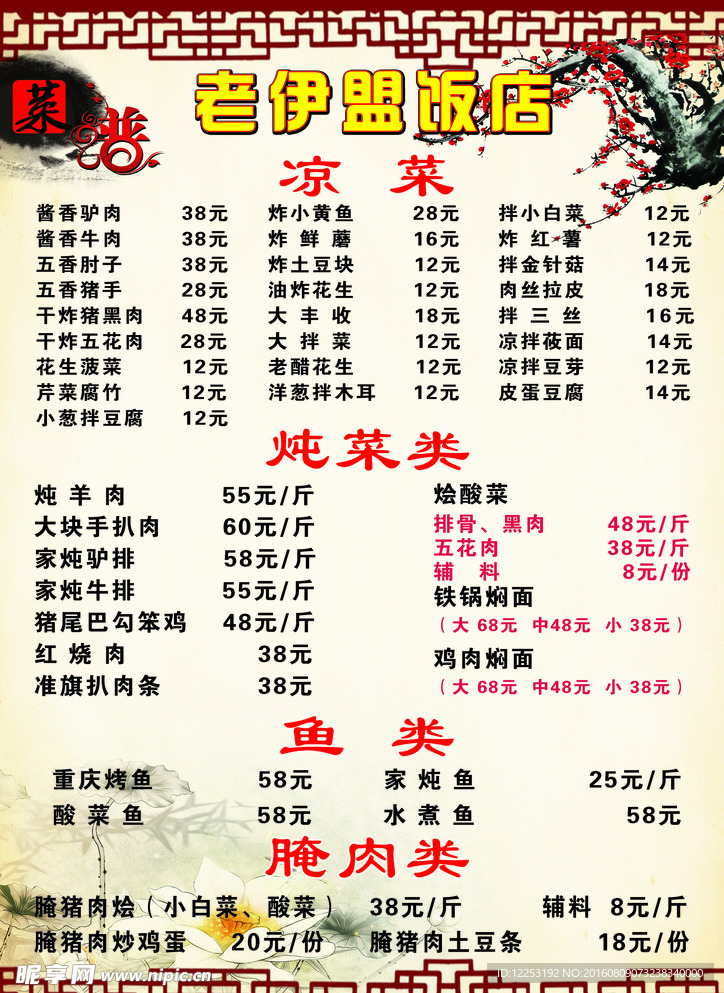 菜谱
老伊盟饭店
凉 菜
酱香驴肉 38元 炸小黄鱼 28元 拌小白菜 12元
酱香牛肉 38元 炸鲜蘑 16元 炸红薯 12元
五香肘子 38元 炸土豆块 12元 拌金针菇 14元
五香猪手 28元 油炸花生 12元 肉丝拉皮 18元
干炸猪黑肉 48元 大丰收 18元 拌三丝 16元
干炸五花肉 28元 大拌菜 12元 凉拌莜面 14元
花生菠菜 12元 老醋花生 12元 凉拌豆芽 12元
芹菜腐竹 12元 洋葱拌木耳 12元 皮蛋豆腐 14元
小葱拌豆腐 12元
炖菜类
炖羊肉 55元/斤
大块手扒肉 60元/斤
家炖驴排 58元/斤
家炖牛排 55元/斤
猪尾巴勾笨鸡 48元/斤
红烧肉 38元
准旗扒肉条 38元
烩酸菜
排骨、黑肉 48元/斤
五花肉 38元/斤
辅 料 8元/份
铁锅焖面
（大 68元 中48元 小 38元）
鸡肉焖面
（大 68元 中48元 小 38元）
鱼 类
重庆烤鱼 58元 家炖鱼 25元/斤
酸菜鱼 58元 水煮鱼 58元
腌肉类
腌猪肉烩（小白菜、酸菜） 38元/斤 辅料 8元/斤
腌猪肉炒鸡蛋 20元/份 腌猪肉土豆条 18元/份
昵享网 www.nipic.cn
ID:12253192 NO:20160809073238340000